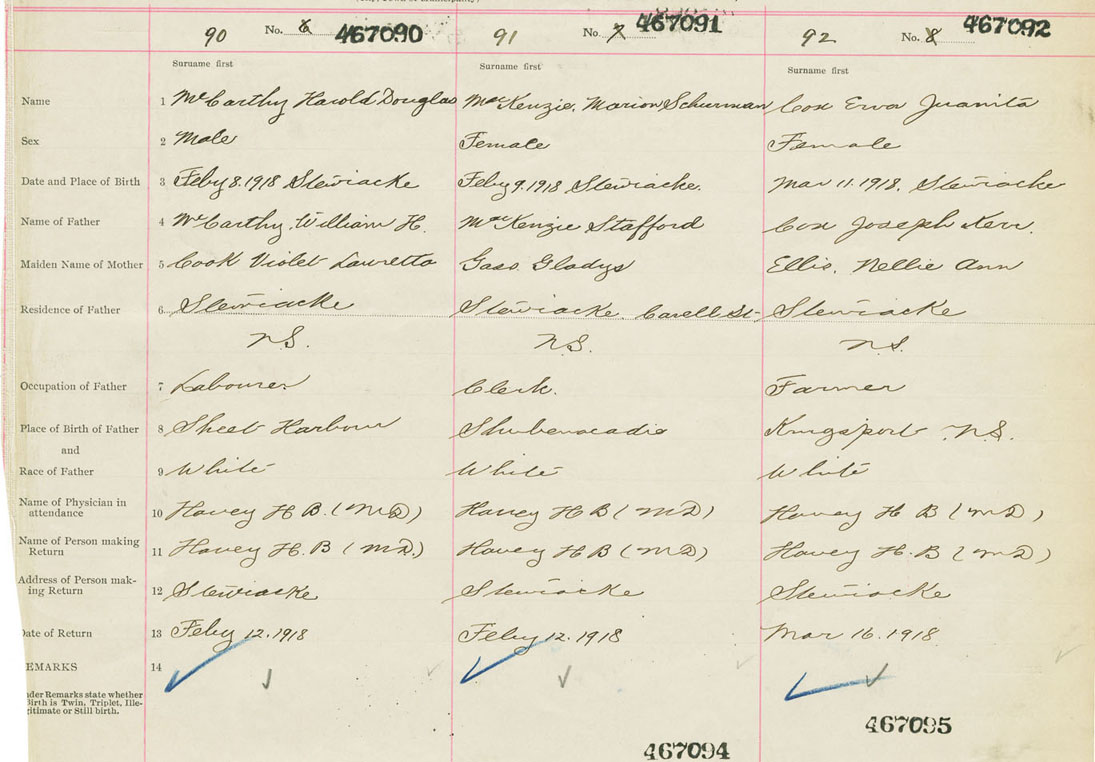 90 No. 6 467090 91 No. 7 467091 92 No. 8 467092
Surname first Surname first Surname first
Name 1 McCarthy Harold Douglas MacKenzie, Marion Schurman Cox Erva Juanita
Sex 2 Male Female Female
Date and Place of Birth 3 Feby 8.1918 Stewiacke Feby 9.1918, Stewiacke. Mar 11.1918, Stewiacke
Name of Father 4 McCarthy, William H. MacKenzie Stafford Cox Joseph Kerr.
Maiden Name of Mother 5 Cook Violet Lauretta Gass. Gladys Ellis. Nellie Ann
Residence of Father 6 Stewiacke Stewiacke. St. Stewiacke
N.S. N.S. N.S.
Occupation of Father 7 Labourer Clerk. Farmer
Place of Birth of Father 8 Sheet Harbour Shubenacadie Kingsport N.S.
and
Race of Father 9 White White White
Name of Physician in
attendance 10 Havey H B. (MD) Havey H B (MD) Havey H B (MD)
Name of Person making
Return 11 Havey H. B (MD.) Havey H B (MD) Havey H. B (MD)
Address of Person mak-
ing Return 12 Stewiacke Stewiacke Stewiacke
Date of Return 13 Feby 12.1918 Feby 12.1918 Mar 16.1918
EMARKS 14
nder Remarks state whether
Birth is Twin, Triplet, Ille-
gitimate or Still birth.
467095
467094